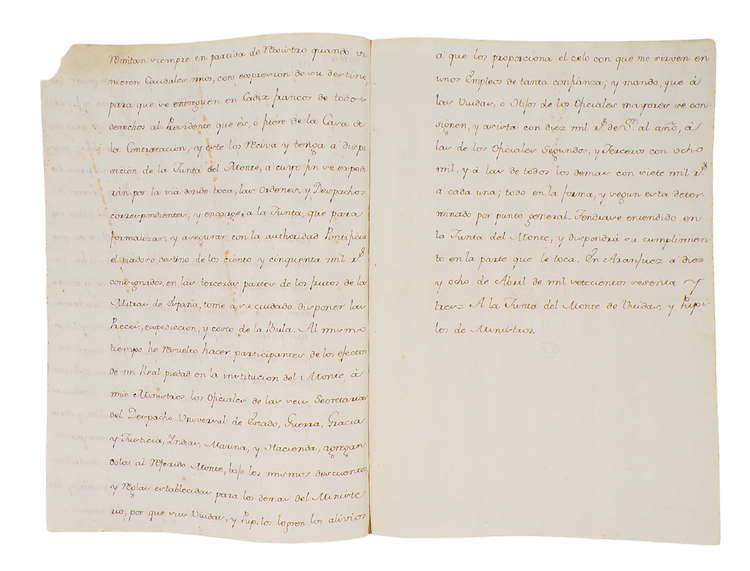 Remitan siempre en partida de Registro quando vi
nieren Caudales mios, con expresion de su destino
para que se entreguen en Cadiz francos de todos
derechos al Presidente que és, o fuere de la Casa de
la Contratacion, y este los reciva y tenga a dispo
sicion de la Junta del Monte, a cuyo fin se expedi
rán por la via donde toca, las Ordenes, y Despachos
correspondientes, y encargo, a la Junta, que para
formalizar, y asegurar con la authoridad Pontificia
el piadoso destino de los ciento y cinquenta mil r.s
consignados, en las terceras partes de los frutos de las
Mitras de España, tome a su cuidado disponer las
Preces, expediccion, y costo de la Bula. Al mismo
tiempo he resuelto hacer participantes de los efectos
de mi Real piedad en la institucion del Monte, á
mis Ministros los Oficiales de las seis Secretarias
del Despacho Universal de Estado, Guerra, Gracia
y Justicia, Indias, Marina, y Hacienda, agregan
dolos al referido Monte, bajo los mismos descuentos
y reglas establecidas para los demas del Ministe
rio, por que sus Viudas, y Pupilos logren los alivios
a que los proporciona el celo con que me sirven en
unos Empleos de tanta confianza; y mando, que á
las Viudas, ó Hijos de los Oficiales mayores se con
signen, y asista con diez mil r.s de V.n al año, á
las de los Oficiales Segundos, y Terceros con ocho
mil, y á las de todos los demas con siete mil r.s
a cada una; todo en la forma, y segun esta deter
minado por punto general. Tendrase entendido en
la Junta del Monte, y dispondrá su cumplimien
to en la parte que le toca. En Aranjuez a diez
y ocho de Abril de mil setecientos sesenta y
tres= A la Junta del Monte de Viudas, y Pupi
los de Ministros.